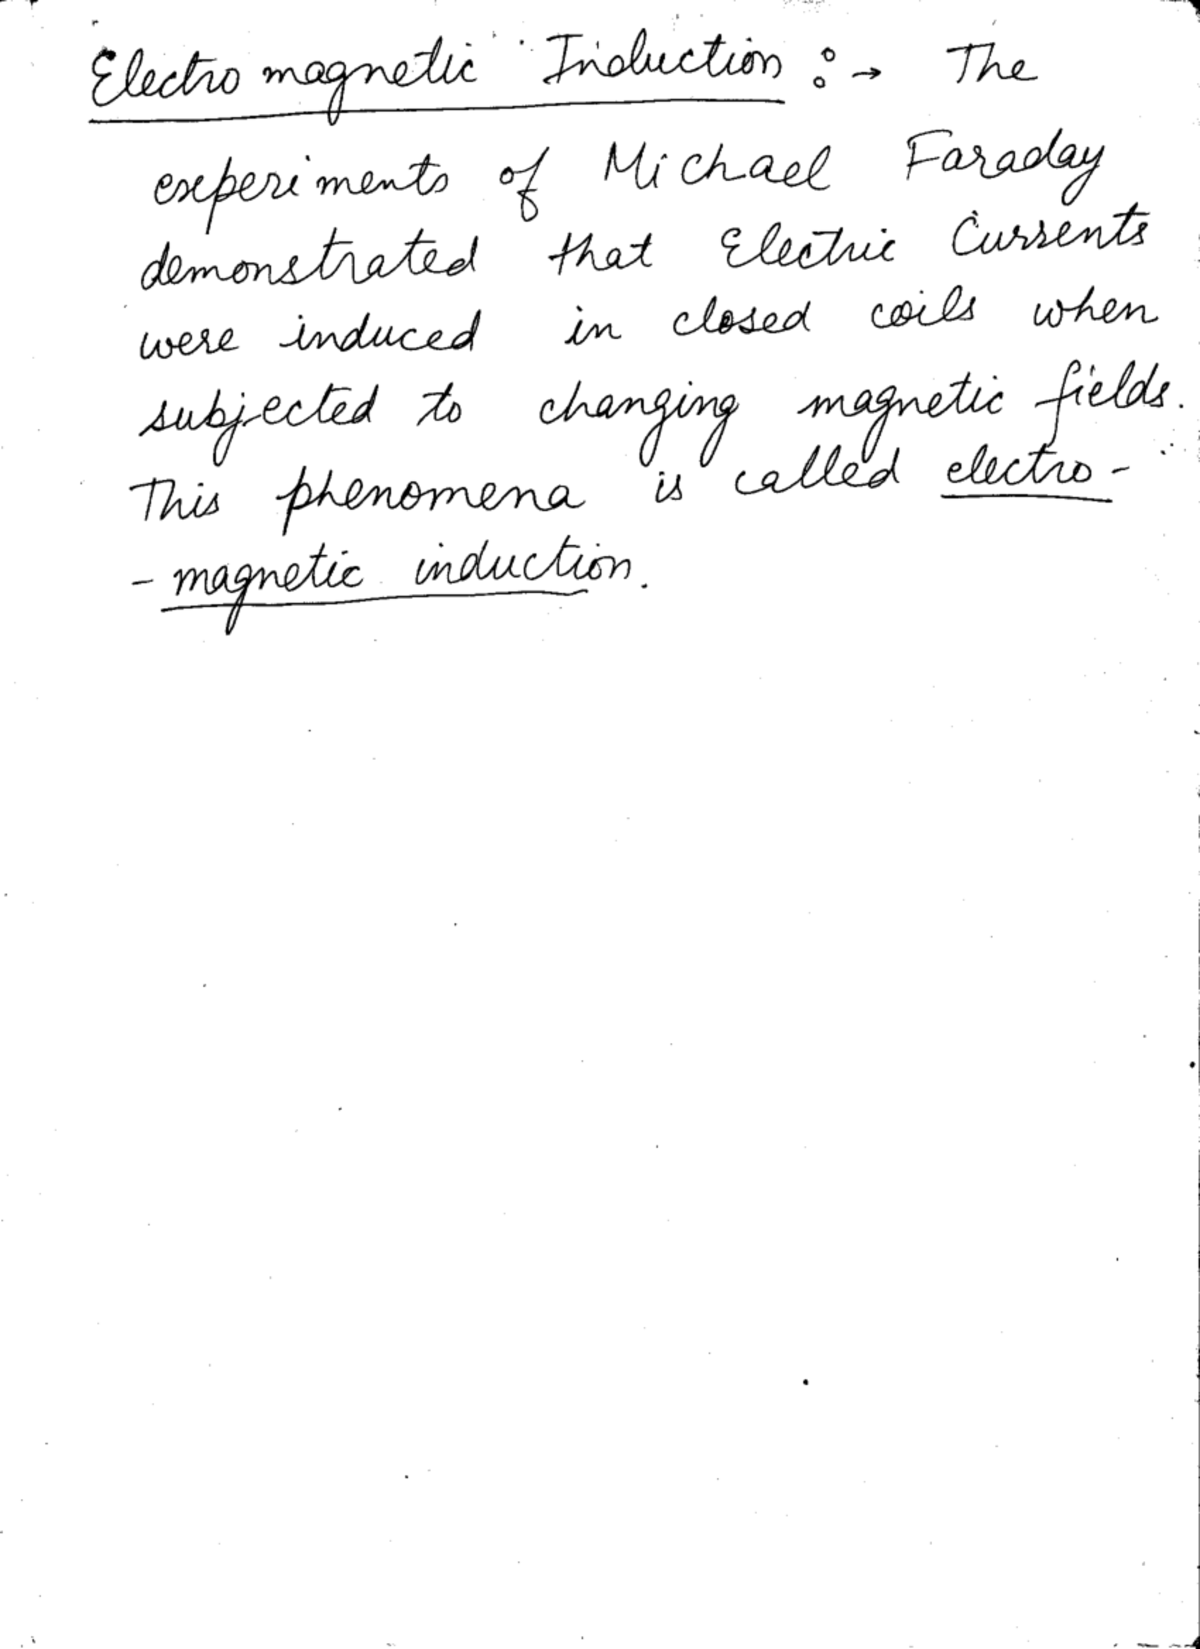 Electro magnetic Induction :→ The
experiments of Michael Faraday
demonstrated that Electric Currents
were induced in closed coils when
subjected to changing magnetic fields.
This phenomena is called electro-
- magnetic induction.